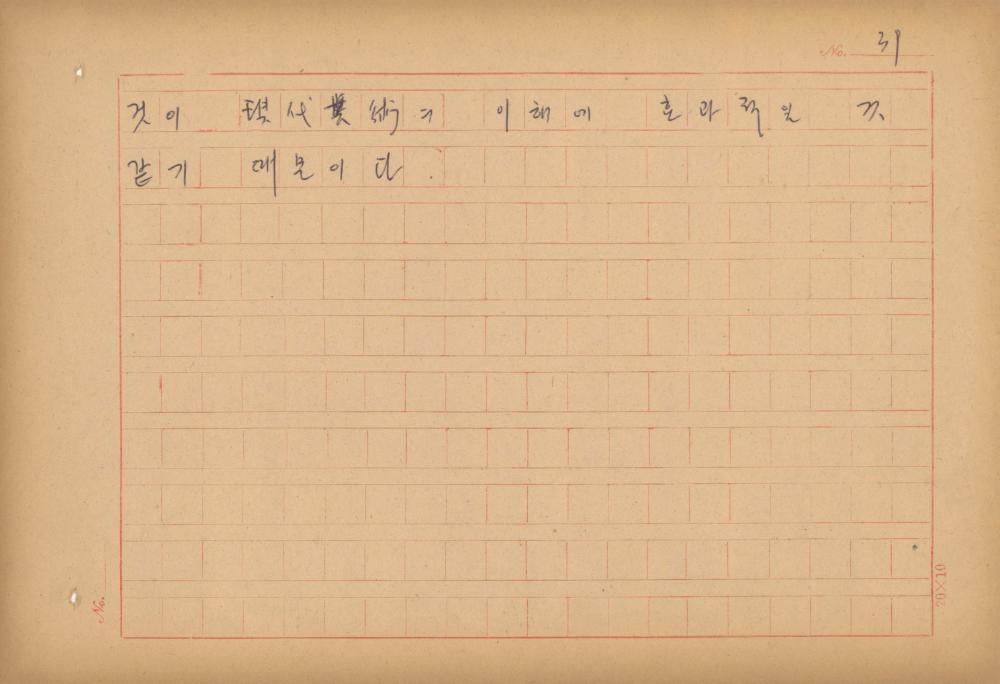 No. 39
것이 現代美術의 이해에 효과적일 것
같기 때문이다.
20×10
No.